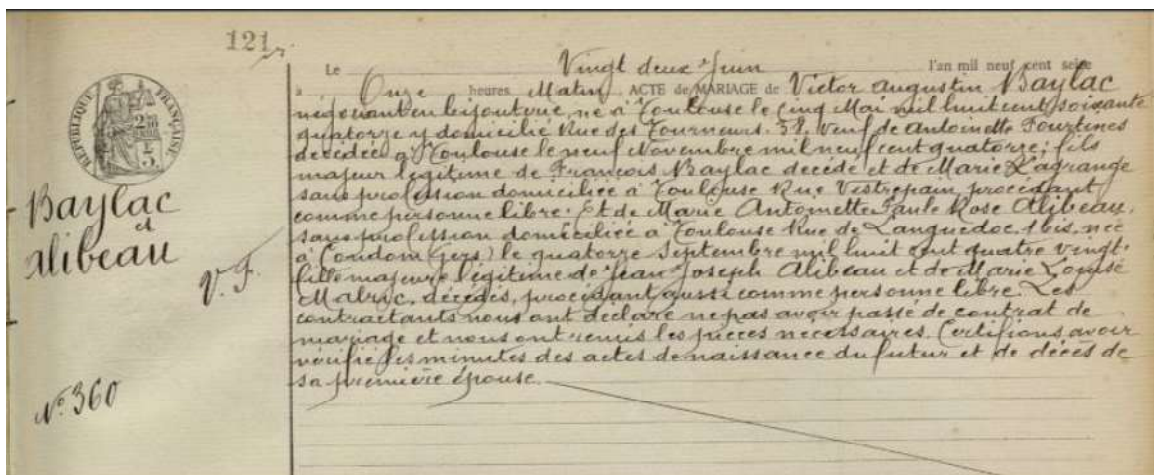 121
Le Vingt deux Juin l'an mil neuf cent seize
à Onze heures Matin ACTE de MARIAGE de Victor Augustin Baylac
négociant en bijouterie, né à Toulouse le cinq Mai mil huit cent soixante
quatorze y domicilié Rue des Tourneurs. 38. Veuf de Antoinette Fourtines
décédée à Toulouse le neuf Novembre mil neuf cent quatorze; fils
majeur légitime de François Baylac décédé et de Marie Lagrange
sans profession domiciliée à Toulouse Rue Vestrepain, procédant
comme personne libre. Et de Marie Antoinette Paule Rose Alibeau,
sans profession domiciliée à Toulouse Rue de Languedoc. 1 bis, née
à Condom (Gers) le quatorze Septembre mil huit cent quatre vingt.
fille majeure légitime de Jean Joseph Alibeau et de Marie Louise
Malric, décédés, procédant aussi comme personne libre. Les
contractants nous ont déclaré ne pas avoir passé de contrat de
mariage et nous ont remis les pièces nécessaires. Certifions avoir
vérifié les minutes des actes de naissance du futur et de décès de
sa première épouse.
REPUBLIQUE FRANÇAISE
Baylac
et
Alibeau
V. F.
N° 360